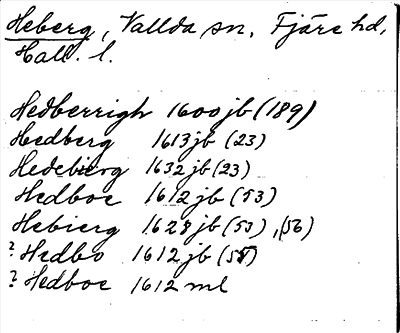 Heberg, Vallda sn, Fjäre hd,
Hall. l.
Hedberrigh 1600 jb (189)
Hedberg 1613 jb (23)
Hedebierg 1632 jb (23)
Hedboe 1612 jb (53)
Hebierg 1628 jb (53), (56)
? Hedbo 1612 jb (55)
? Hedboe 1612 ml